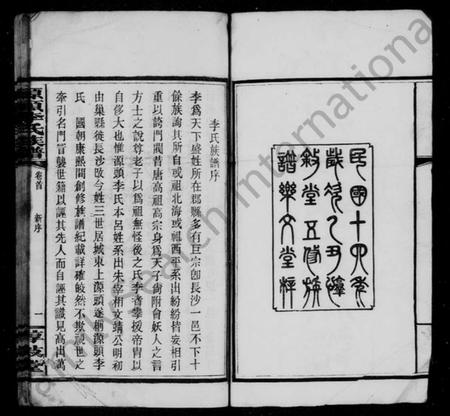 民國十四年
歲次乙丑蓮
敘堂五修族
譜樂文堂梓
李氏族譜序
李爲天下盛姓所在郡縣多有巨宗卽長沙一邑不下十
餘族詢其所自或祖北海或祖西平系出紛紛皆妄相引
重以誇門閥昔唐高祖高宗身爲天子尚附會妖人之言
方士之說尊老子以爲祖無怪後之李者攀援帝冑以
自侈大也惟源頭李氏本呂姓系出宋宰相文靖公明初
由巢縣徙長沙改今姓三世居城東上源頭遂稱源頭李
氏 國朝康熙間創修族譜紀載詳確皎然不欺視世之
牽引名門冒襲世籍以誣其先人而自誣其識見高出萬
源頭李氏族譜
卷首
新序
一
敦敘堂